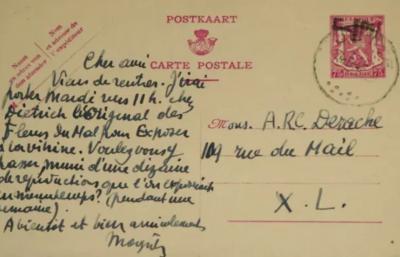 POSTKAART
CARTE POSTALE
Naam
en adres van
den afzender
Nom
et adresse de
l'expéditeur
BELGIE
75
75
Cher ami
Viens de rentrer. J'irai
porter Mardi vers 11 h. chez
Dietrich l'original des
Fleurs du Mal pour Exposer
à la vitrine. Voulez vous y
passer muni d'une dizaine
de reproductions que l'on
en même temps? (pendant une
semaine)
A bientôt et bien amicalement
Mons. A.
109 rue du Mail
X. L.